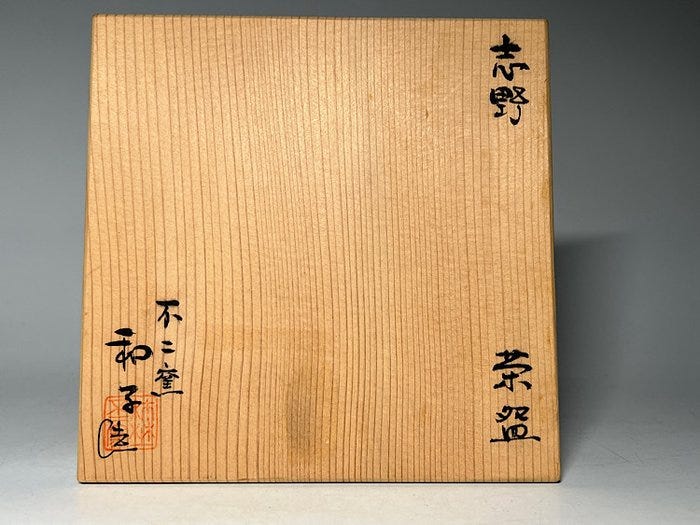 志野
茶盌
不二窯
和子造